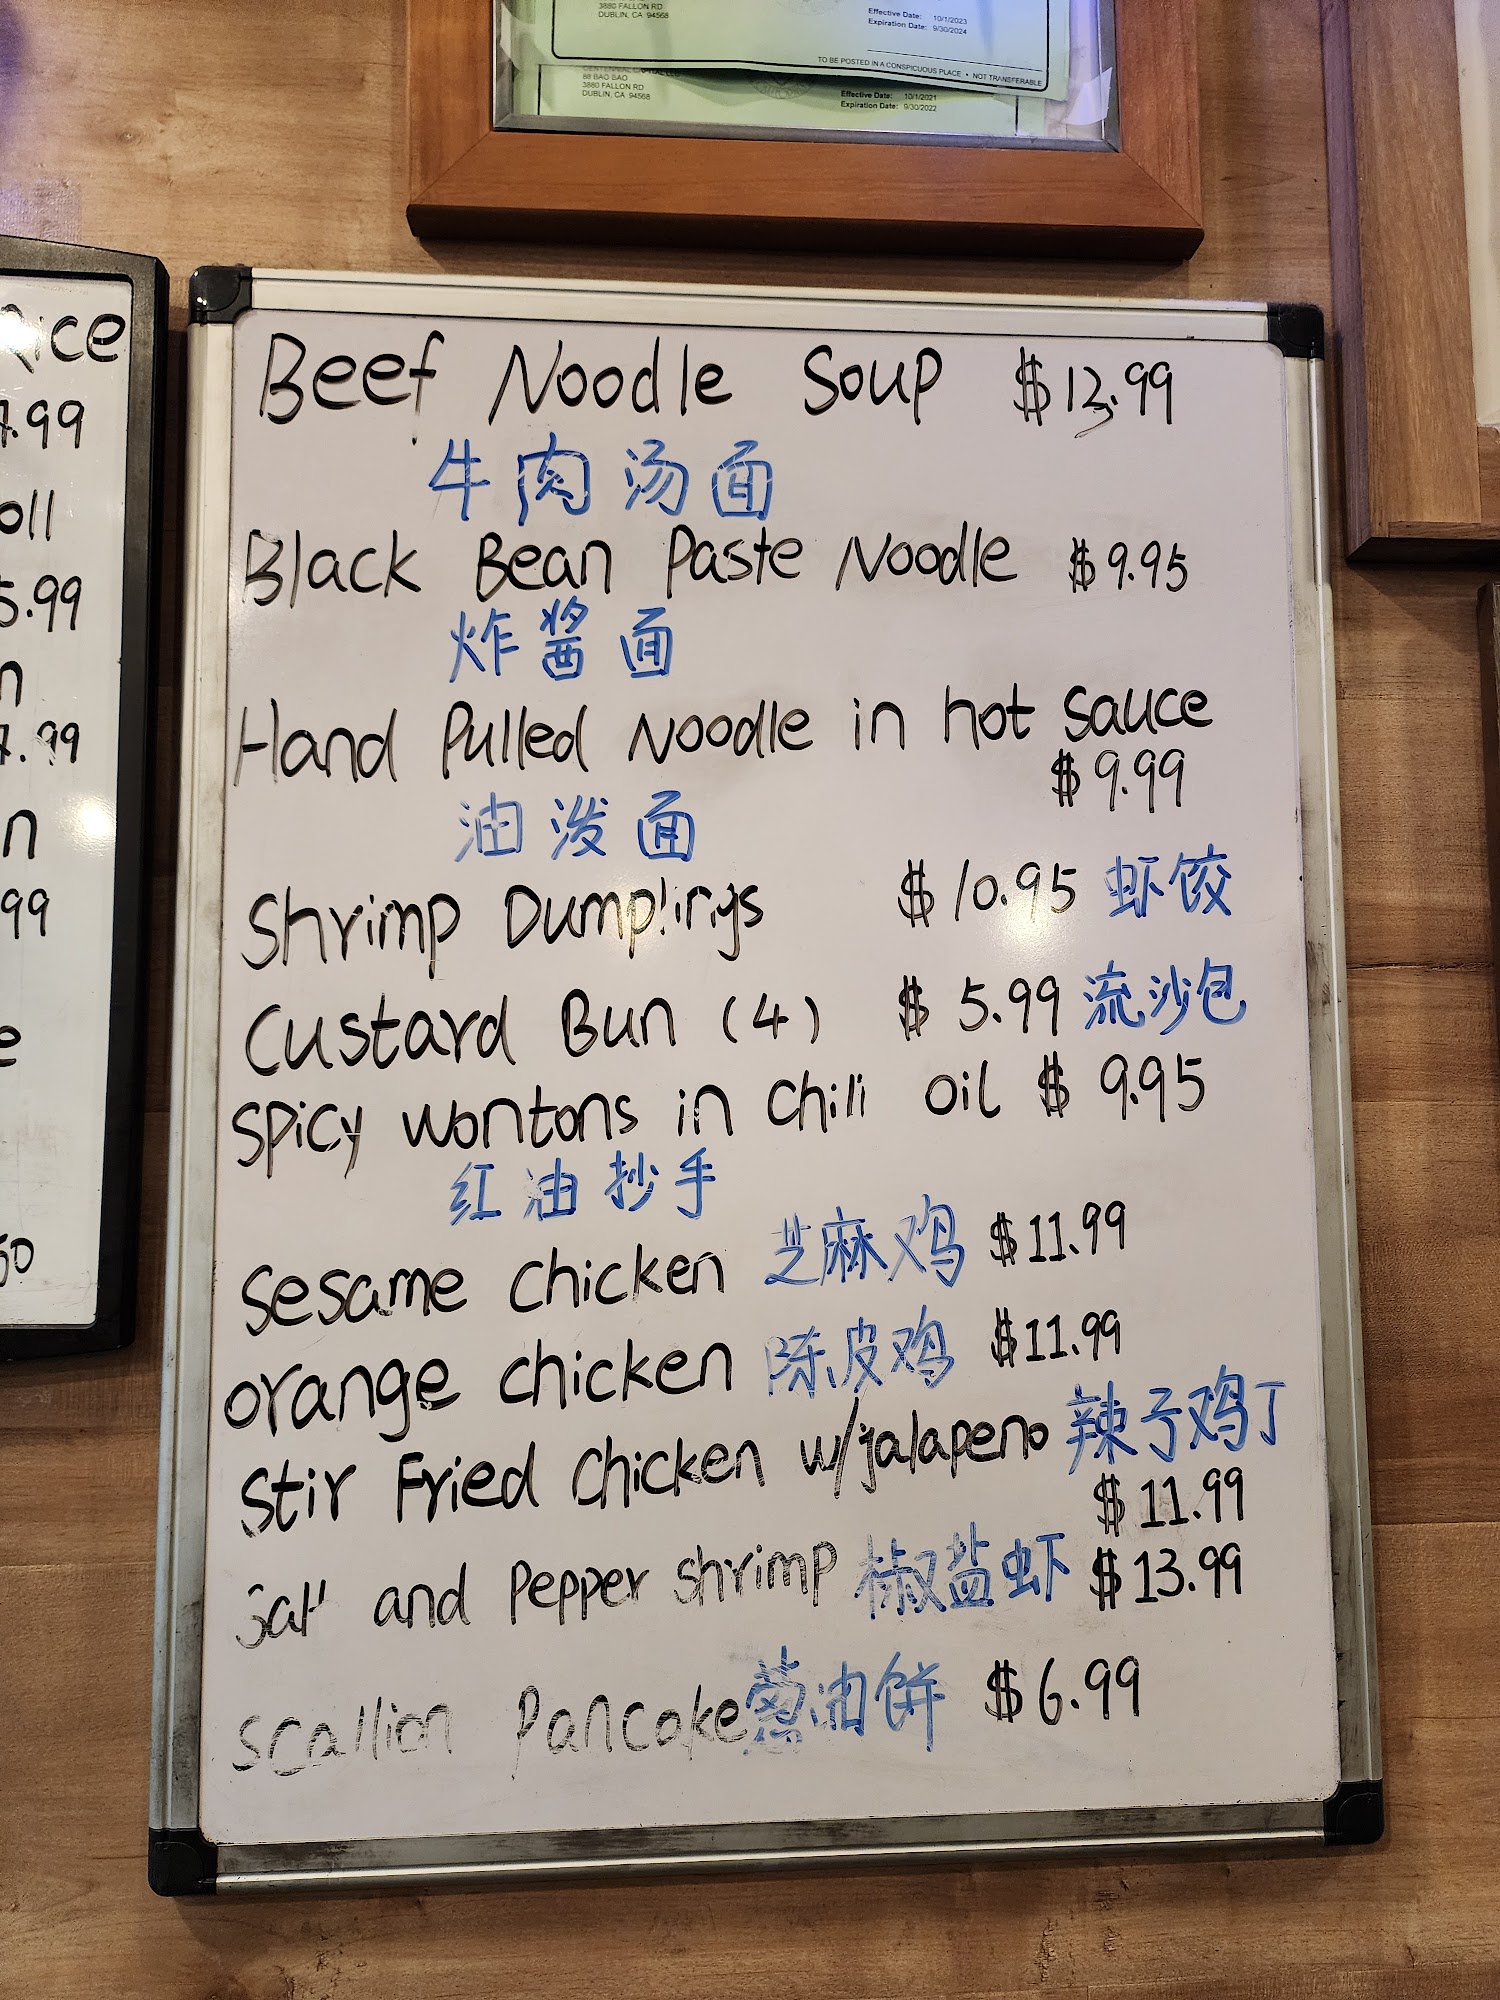 3880 FALLON RD
DUBLIN, CA 94568
Effective Date: 10/1/2023
Expiration Date: 9/30/2024
TO BE POSTED IN A CONSPICUOUS PLACE • NOT TRANSFERABLE
88 BAO BAO
3880 FALLON RD
DUBLIN, CA 94568
Effective Date: 10/1/2021
Expiration Date: 9/30/2022
Rice
.99
oll
5.99
n
.99
n
99
e
50
Beef Noodle Soup $13.99
牛肉汤面
Black Bean Paste Noodle $9.95
炸酱面
Hand Pulled Noodle in hot sauce
$9.99
油泼面
Shrimp Dumplings $10.95 虾饺
Custard Bun (4) $5.99 流沙包
Spicy wontons in Chili oil $9.95
红油抄手
Sesame chicken 芝麻鸡 $11.99
orange chicken 陈皮鸡 $11.99
Stir Fried Chicken w/jalapeno 辣子鸡丁
$11.99
Salt and Pepper shrimp 椒盐虾 $13.99
Scallion Pancake 葱油饼 $6.99